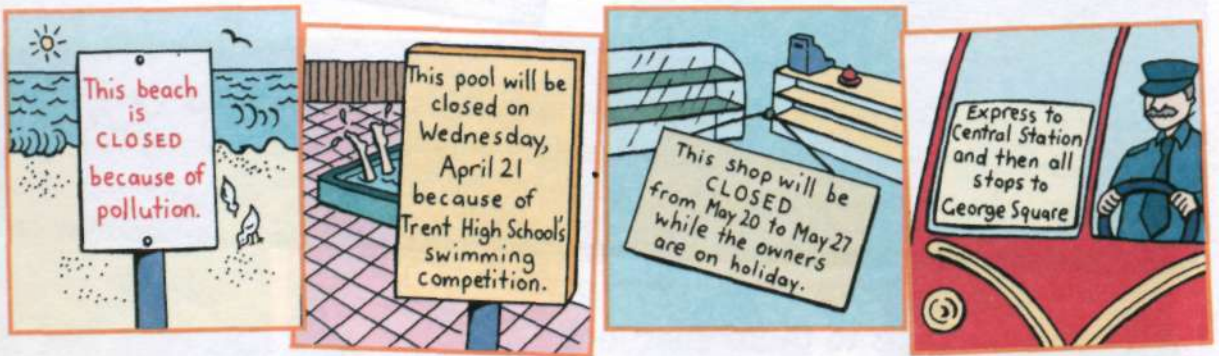 This beach
is
CLOSED
because of
pollution.
This pool will be
closed on
Wednesday,
April 21
because of
Trent High School's
swimming
competition.
This shop will be
CLOSED
from May 20 to May 27
while the owners
are on holiday.
Express to
Central Station
and then all
stops to
George Square